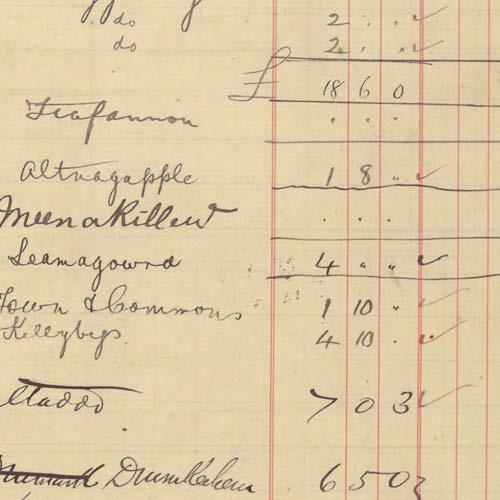 do 2 . . ✓
do 2 . . ✓
£ 18 6 0
. . .
Altnagapple 1 8 „ ✓
Meenakillew . . .
Leamagowra 4 „ „ ✓
Town & Commons 1 10 „ ✓
Killybegs 4 10 . ✓
7 0 3 ✓
6 5 0